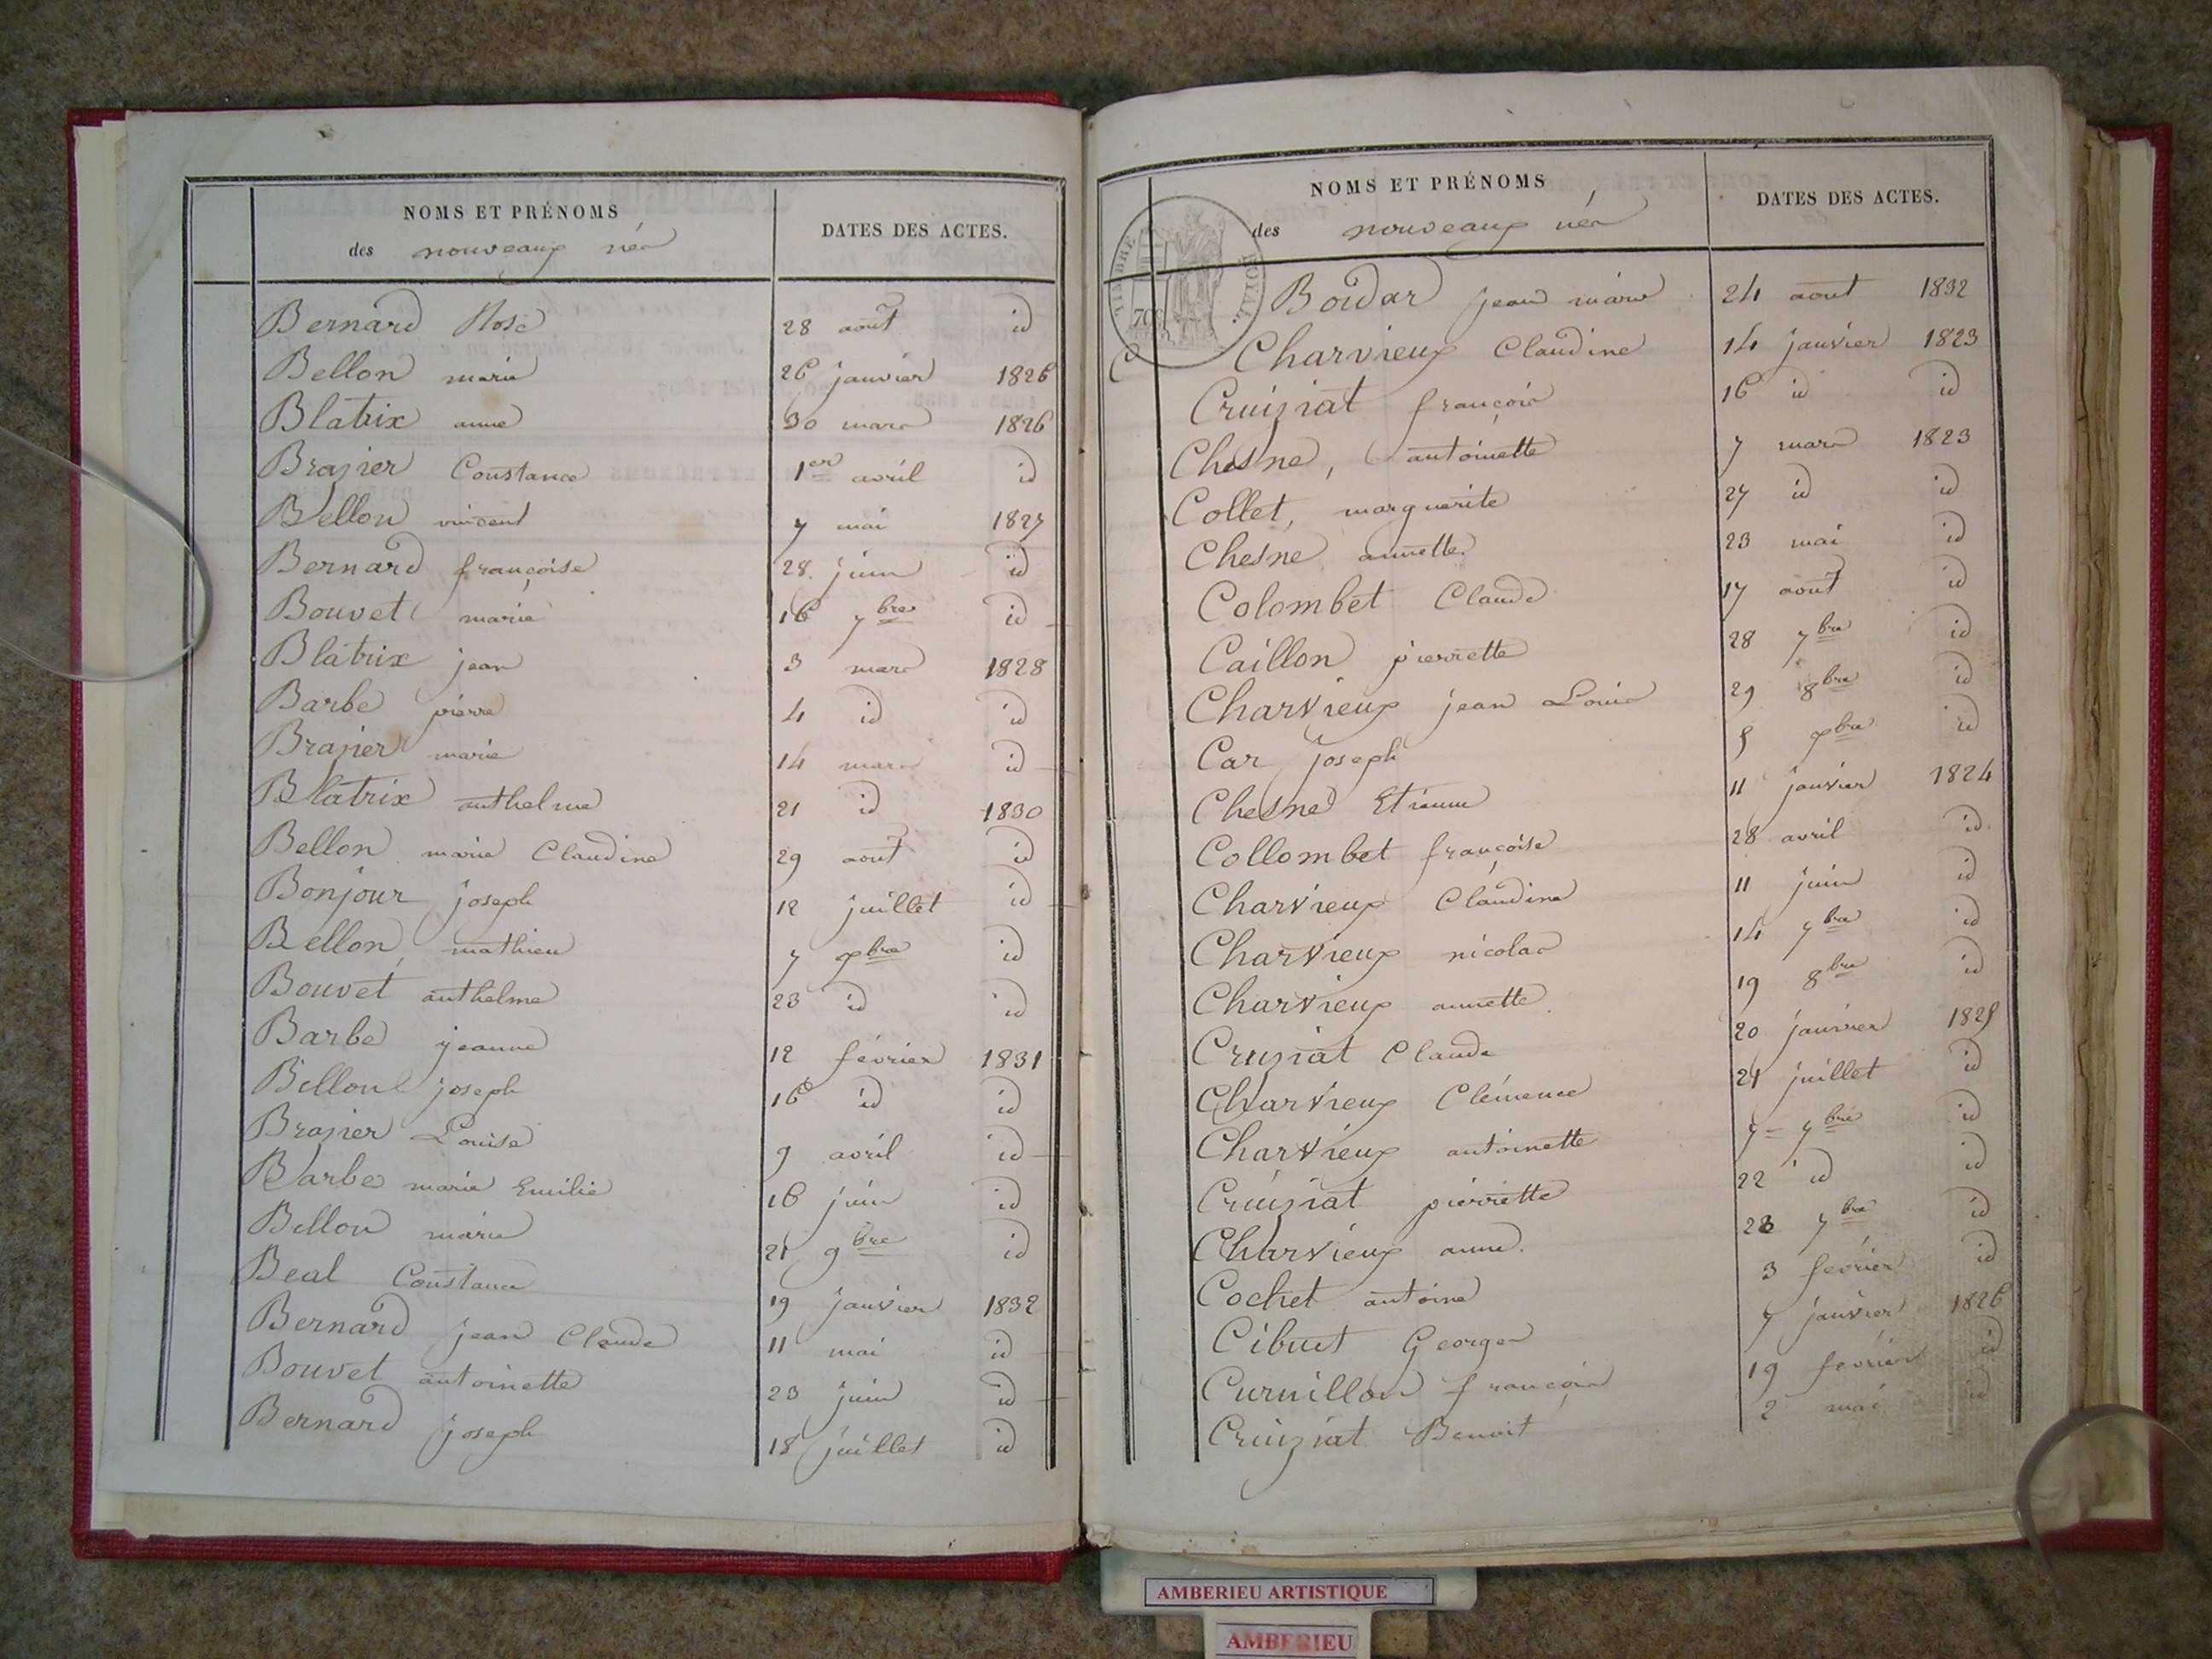 NOMS ET PRÉNOMS
des nouveaux nés
DATES DES ACTES.
Bernard Rose 28 août id
Bellon marie 26 janvier 1826
Blatrix anne 30 mars 1826
Brazier Constance 1er avril id
Bellon vincent 7 mai 1827
Bernard françoise 28 juin id
Bouvet marie 16 7bre id
Blatrix jean 3 mars 1828
Barbe pierre 4 id id
Brazier marie 14 mars id
Blatrix anthelme 21 id 1830
Bellon marie Claudine 29 août id
Bonjour joseph 12 juillet id
Bellon mathieu 7 9bre id
Bouvet anthelme 23 id id
Barbe jeanne 12 février 1831
Bellon joseph 16 id id
Brazier Louise 9 avril id
Barbe marie Emilie 16 juin id
Bellon marie 21 9bre id
Beal Constance 19 janvier 1832
Bernard jean Claude 11 mai id
Bouvet antoinette 23 juin id
Bernard joseph 18 juillet id
NOMS ET PRÉNOMS
des nouveaux nés
DATES DES ACTES.
TIMBRE ROYAL.
Boidar jean marie 24 aout 1832
C Charvieux Claudine 14 janvier 1823
Cruiziat françois 16 id id
Chesne, antoinette 7 mars 1823
Collet, marguerite 27 id id
Chesne annette 23 mai id
Colombet Claude 17 août id
Caillon pierrette 28 7bre id
Charvieux jean Louis 29 8bre id
Car joseph 5 9bre id
Chesne Etienne 11 janvier 1824
Collombet françoise 28 avril id
Charvieux Claudine 11 juin id
Charvieux nicolas 14 7bre id
Charvieux annette 19 8bre id
Cruziat Claude 20 janvier 1825
Charvieux Clémence 21 juillet id
Charvieux antoinette 7 7bre id
Cruiziat pierrette 22 id id
Charvieux anne 28 7bre id
Cochet antoine 3 février id
Cibuet George 7 janvier 1826
Curnillon françois 19 fevrier id
Cruiziat Benoit 2 mai id
AMBERIEU ARTISTIQUE
AMBERIEU